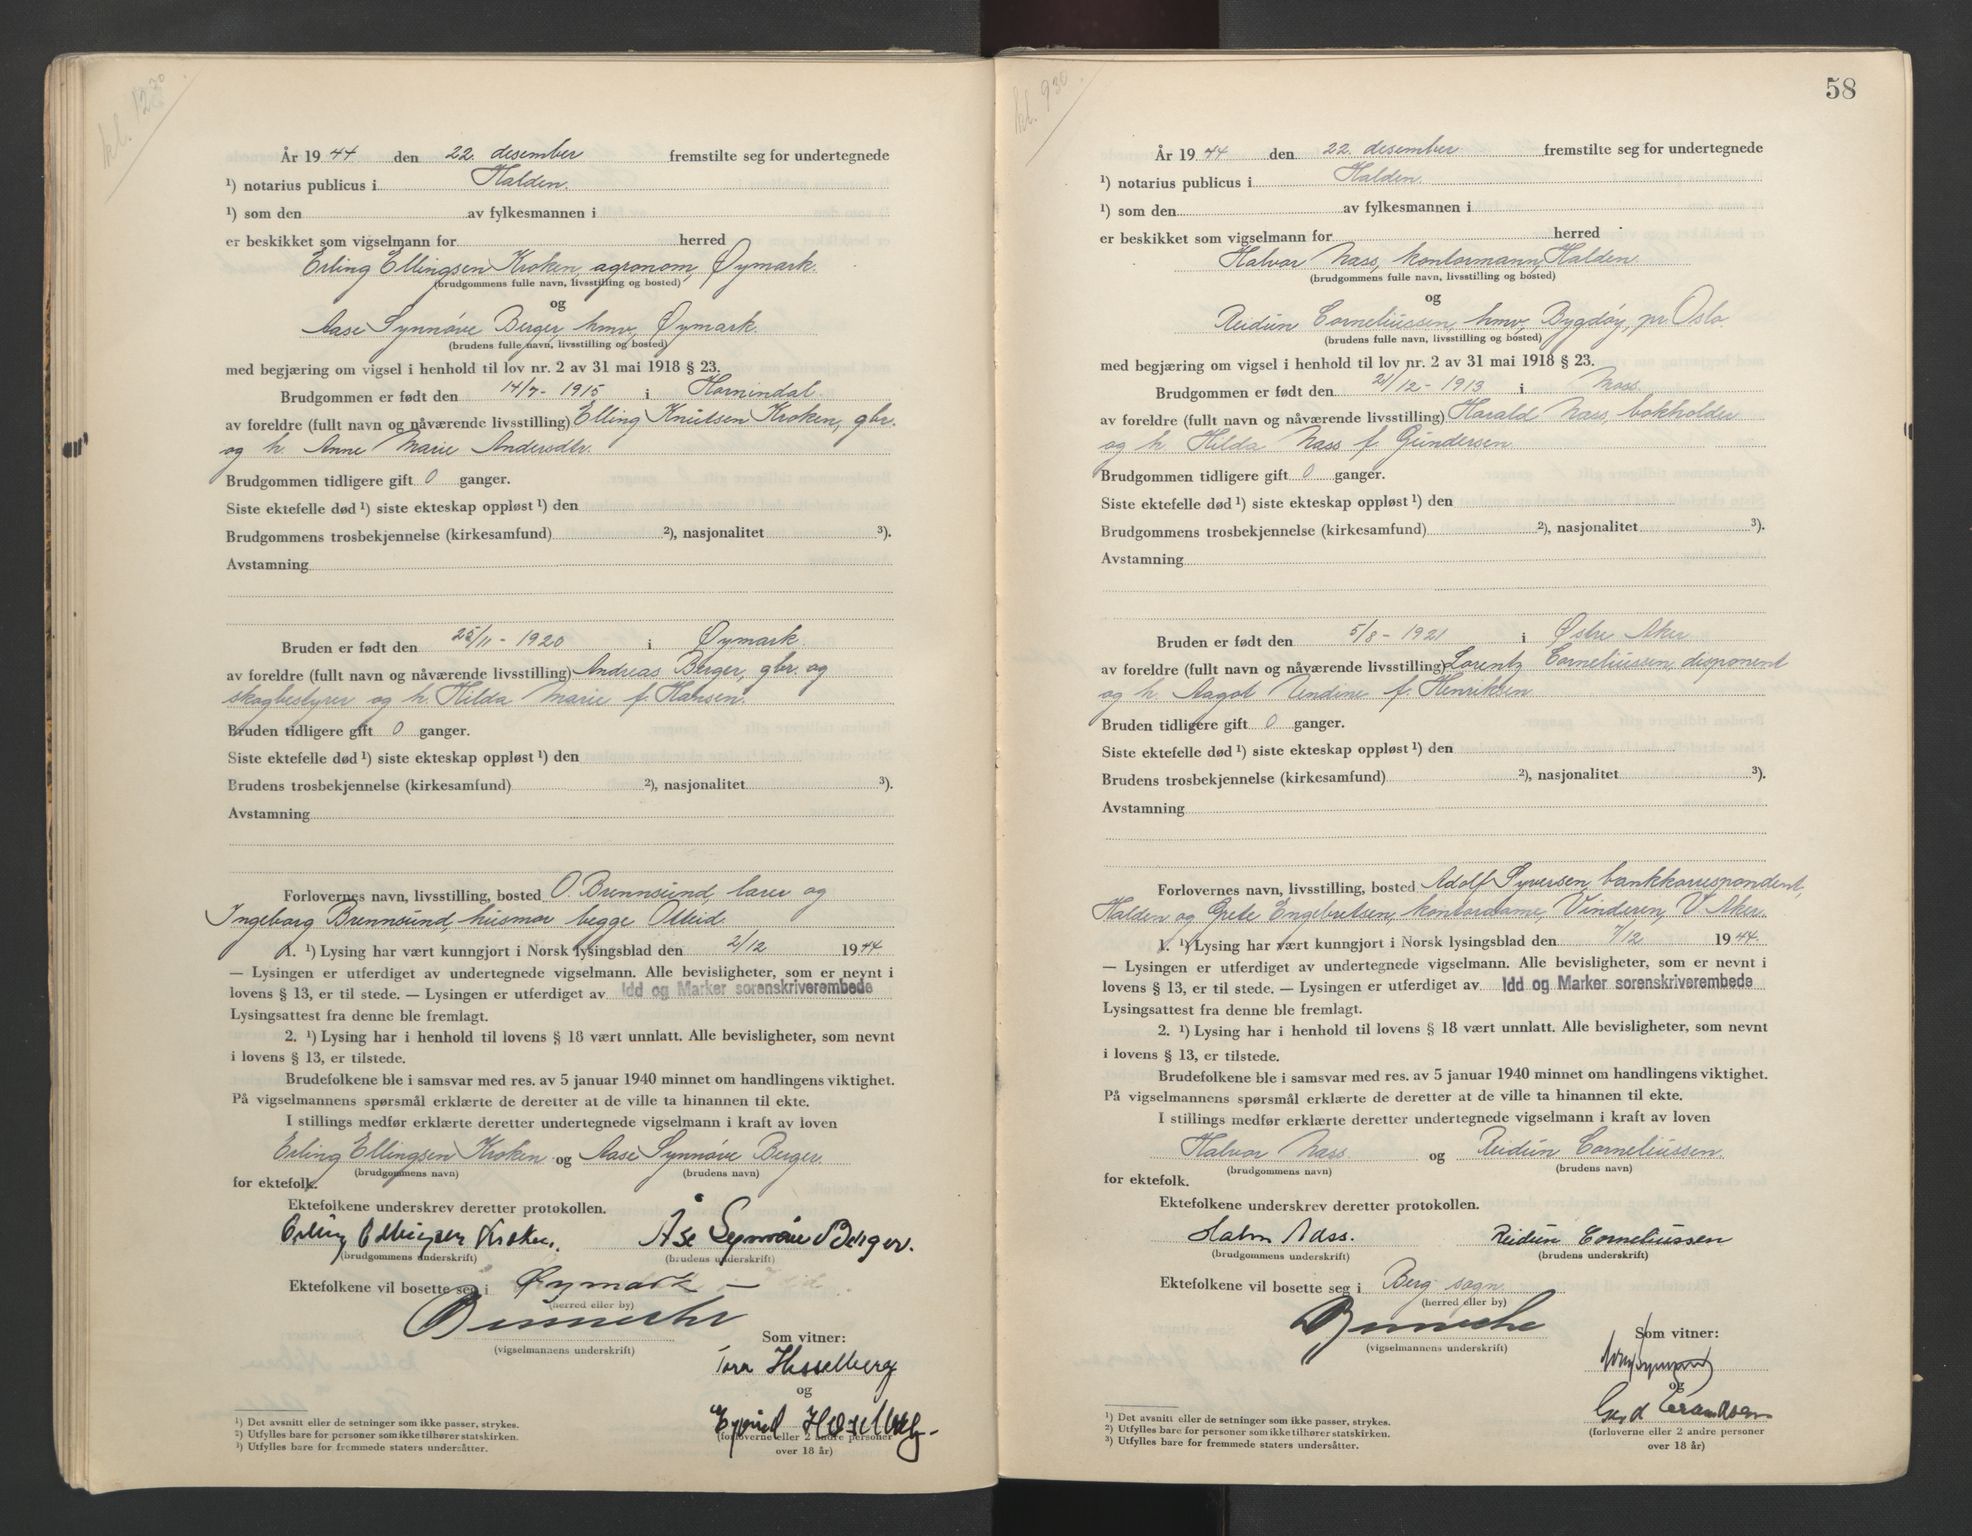 kl. 12
År 1944 den 22. desember fremstilte seg for undertegnede
¹) notarius publicus i Halden.
¹) som den av fylkesmannen i
er beskikket som vigselmann for herred
Erling Ellingsen Kroken, agronom, Øymark.
(brudgommens fulle navn, livsstilling og bosted)
og
Aase Synnøve Berger, hmv, Øymark.
(brudens fulle navn, livsstilling og bosted)
med begjæring om vigsel i henhold til lov nr. 2 av 31 mai 1918 § 23.
Brudgommen er født den 14/7 - 1915 i Hornindal
av foreldre (fullt navn og nåværende livsstilling) Elling Knutsen Kroken, gbr.
og h. Anne Marie Andersdtr.
Brudgommen tidligere gift 0 ganger.
Siste ektefelle død ¹) siste ekteskap oppløst ¹) den
Brudgommens trosbekjennelse (kirkesamfund) ²), nasjonalitet ³).
Avstamning
Bruden er født den 25/11 - 1920 i Øymark
av foreldre (fullt navn og nåværende livsstilling) Andreas Berger, gbr. og
skogbestyrer og h. Hilda Marie f. Hansen.
Bruden tidligere gift 0 ganger.
Siste ektefelle død ¹) siste ekteskap oppløst ¹) den
Brudens trosbekjennelse (kirkesamfund) ²), nasjonalitet ³).
Avstamning
Forlovernes navn, livsstilling, bosted O. Brennsund, lærer og
Ingeborg Brennsund, husmor begge Otteid.
1. ¹) Lysing har vært kunngjort i Norsk lysingsblad den 2/12 1944
— Lysingen er utferdiget av undertegnede vigselmann. Alle bevisligheter, som er nevnt i
lovens § 13, er til stede. — Lysingen er utferdiget av Idd og Marker sorenskriverembede
Lysingsattest fra denne ble fremlagt.
2. ¹) Lysing har i henhold til lovens § 18 vært unnlatt. Alle bevisligheter, som nevnt
i lovens § 13, er tilstede.
Brudefolkene ble i samsvar med res. av 5 januar 1940 minnet om handlingens viktighet.
På vigselmannens spørsmål erklærte de deretter at de ville ta hinannen til ekte.
I stillings medfør erklærte deretter undertegnede vigselmann i kraft av loven
Erling Ellingsen Kroken og Aase Synnøve Berger.
(brudgommens navn) (brudens navn)
for ektefolk.
Ektefolkene underskrev deretter protokollen.
Erling Ellingsen Kroken. Åse Synnøve Berger.
(brudgommens underskrift) (brudens underskrift)
Ektefolkene vil bosette seg i Øymark —
(herred eller by)
(vigselmannens underskrift)
Som vitner:
Tora Hesselberg
og
Eyvind Hesselberg.
(forloverne eller 2 andre personer
over 18 år)
¹) Det avsnitt eller de setninger som ikke passer, strykes.
²) Utfylles bare for personer som ikke tilhører statskirken.
³) Utfylles bare for fremmede staters undersåtter.
58
kl. 9³⁰.
År 1944 den 22. desember fremstilte seg for undertegnede
¹) notarius publicus i Halden.
¹) som den av fylkesmannen i
er beskikket som vigselmann for herred
Halvor Nass, kontormann, Halden.
(brudgommens fulle navn, livsstilling og bosted)
og
Reidun Corneliussen, hmv, Bygdøy, pr. Oslo.
(brudens fulle navn, livsstilling og bosted)
med begjæring om vigsel i henhold til lov nr. 2 av 31 mai 1918 § 23.
Brudgommen er født den 21/12 - 1913 i Moss.
av foreldre (fullt navn og nåværende livsstilling) Harald Nass, bokholder
og h. Hilda Nass f. Gundersen.
Brudgommen tidligere gift 0 ganger.
Siste ektefelle død ¹) siste ekteskap oppløst ¹) den
Brudgommens trosbekjennelse (kirkesamfund) ²), nasjonalitet ³).
Avstamning
Bruden er født den 5/8 - 1921 i Østre Aker
av foreldre (fullt navn og nåværende livsstilling) Lorentz Corneliussen, disponent
og h. Aagot Undine f. Henriksen.
Bruden tidligere gift 0 ganger.
Siste ektefelle død ¹) siste ekteskap oppløst ¹) den
Brudens trosbekjennelse (kirkesamfund) ²), nasjonalitet ³).
Avstamning
Forlovernes navn, livsstilling, bosted Adolf Syversen, bankkorrespondent,
Halden og Grete Engebretsen, kontordame, Vinderen, V. Aker.
1. ¹) Lysing har vært kunngjort i Norsk lysingsblad den 7/12 1944.
— Lysingen er utferdiget av undertegnede vigselmann. Alle bevisligheter, som er nevnt i
lovens § 13, er til stede. — Lysingen er utferdiget av Idd og Marker sorenskriverembede
Lysingsattest fra denne ble fremlagt.
2. ¹) Lysing har i henhold til lovens § 18 vært unnlatt. Alle bevisligheter, som nevnt
i lovens § 13, er tilstede.
Brudefolkene ble i samsvar med res. av 5 januar 1940 minnet om handlingens viktighet.
På vigselmannens spørsmål erklærte de deretter at de ville ta hinannen til ekte.
I stillings medfør erklærte deretter undertegnede vigselmann i kraft av loven
Halvor Nass og Reidun Corneliussen.
(brudgommens navn) (brudens navn)
for ektefolk.
Ektefolkene underskrev deretter protokollen.
Halvor Nass. Reidun Corneliussen
(brudgommens underskrift) (brudens underskrift)
Ektefolkene vil bosette seg i Berg sogn
(herred eller by)
(vigselmannens underskrift)
Som vitner:
og
Gerd
(forloverne eller 2 andre personer
over 18 år)
¹) Det avsnitt eller de setninger som ikke passer, strykes.
²) Utfylles bare for personer som ikke tilhører statskirken.
³) Utfylles bare for fremmede staters undersåtter.